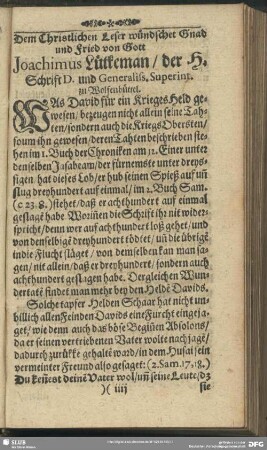 Dem Christlichen Leser wündschet Gnad
und Fried von Gott
Joachimus Lütkeman/ der H.
Schrifft D. und Generaliss. Superint.
zu Wolfenbüttel.
WAs David für ein Krieges Held ge-
wesen/ bezeugen nicht allein seine Tah-
ten/ sondern auch die Kriegs Obersten/
so um ihn gewesen/ deren Tahten beschrieben ste-
hen im 1. Buch der Chroniken am 12. Einer unter
denselben Jasabeam/ der fürnemste unter dreys-
sigen, hat dieses Lob/ er hub seinen Spieß auf uñ
slug dreyhundert auf einmal/ im 2. Buch Sam.
(c 23. 8.) stehet/ daß er achthundert auf einmal
geslagē habe Woriñen die Schrift ihr nit wider-
spricht/ denn wer auf achthundert loß gehet/ und
von denselbigē dreyhundert tödtet/ uñ die übrigē
indie Flucht släget/ von demselben kan man sa-
gen/ nit allein/ daß er dreyhundert/ sondern auch
achthundert geslagen habe. Dergleichen Wun-
dertatē findet man mehr bey den Helde Davids.
Solche tapfer Helden Schaar hat nicht un-
billich allen Feinden Davids eine Furcht eingeja-
get/ wie denn auch das böse Begiñen Absolons/
da er seinen vertriebenen Vater wolte nachjagē/
dadurch zurükke gehaltē ward/ in dem Husai sein
vermeinter Freund also gesaget: (2. Sam. 17, 8.)
Du keñest deinē Vater wol/ uñ seine Leute/ dz
)( iiij
sie
SLUB
DFG